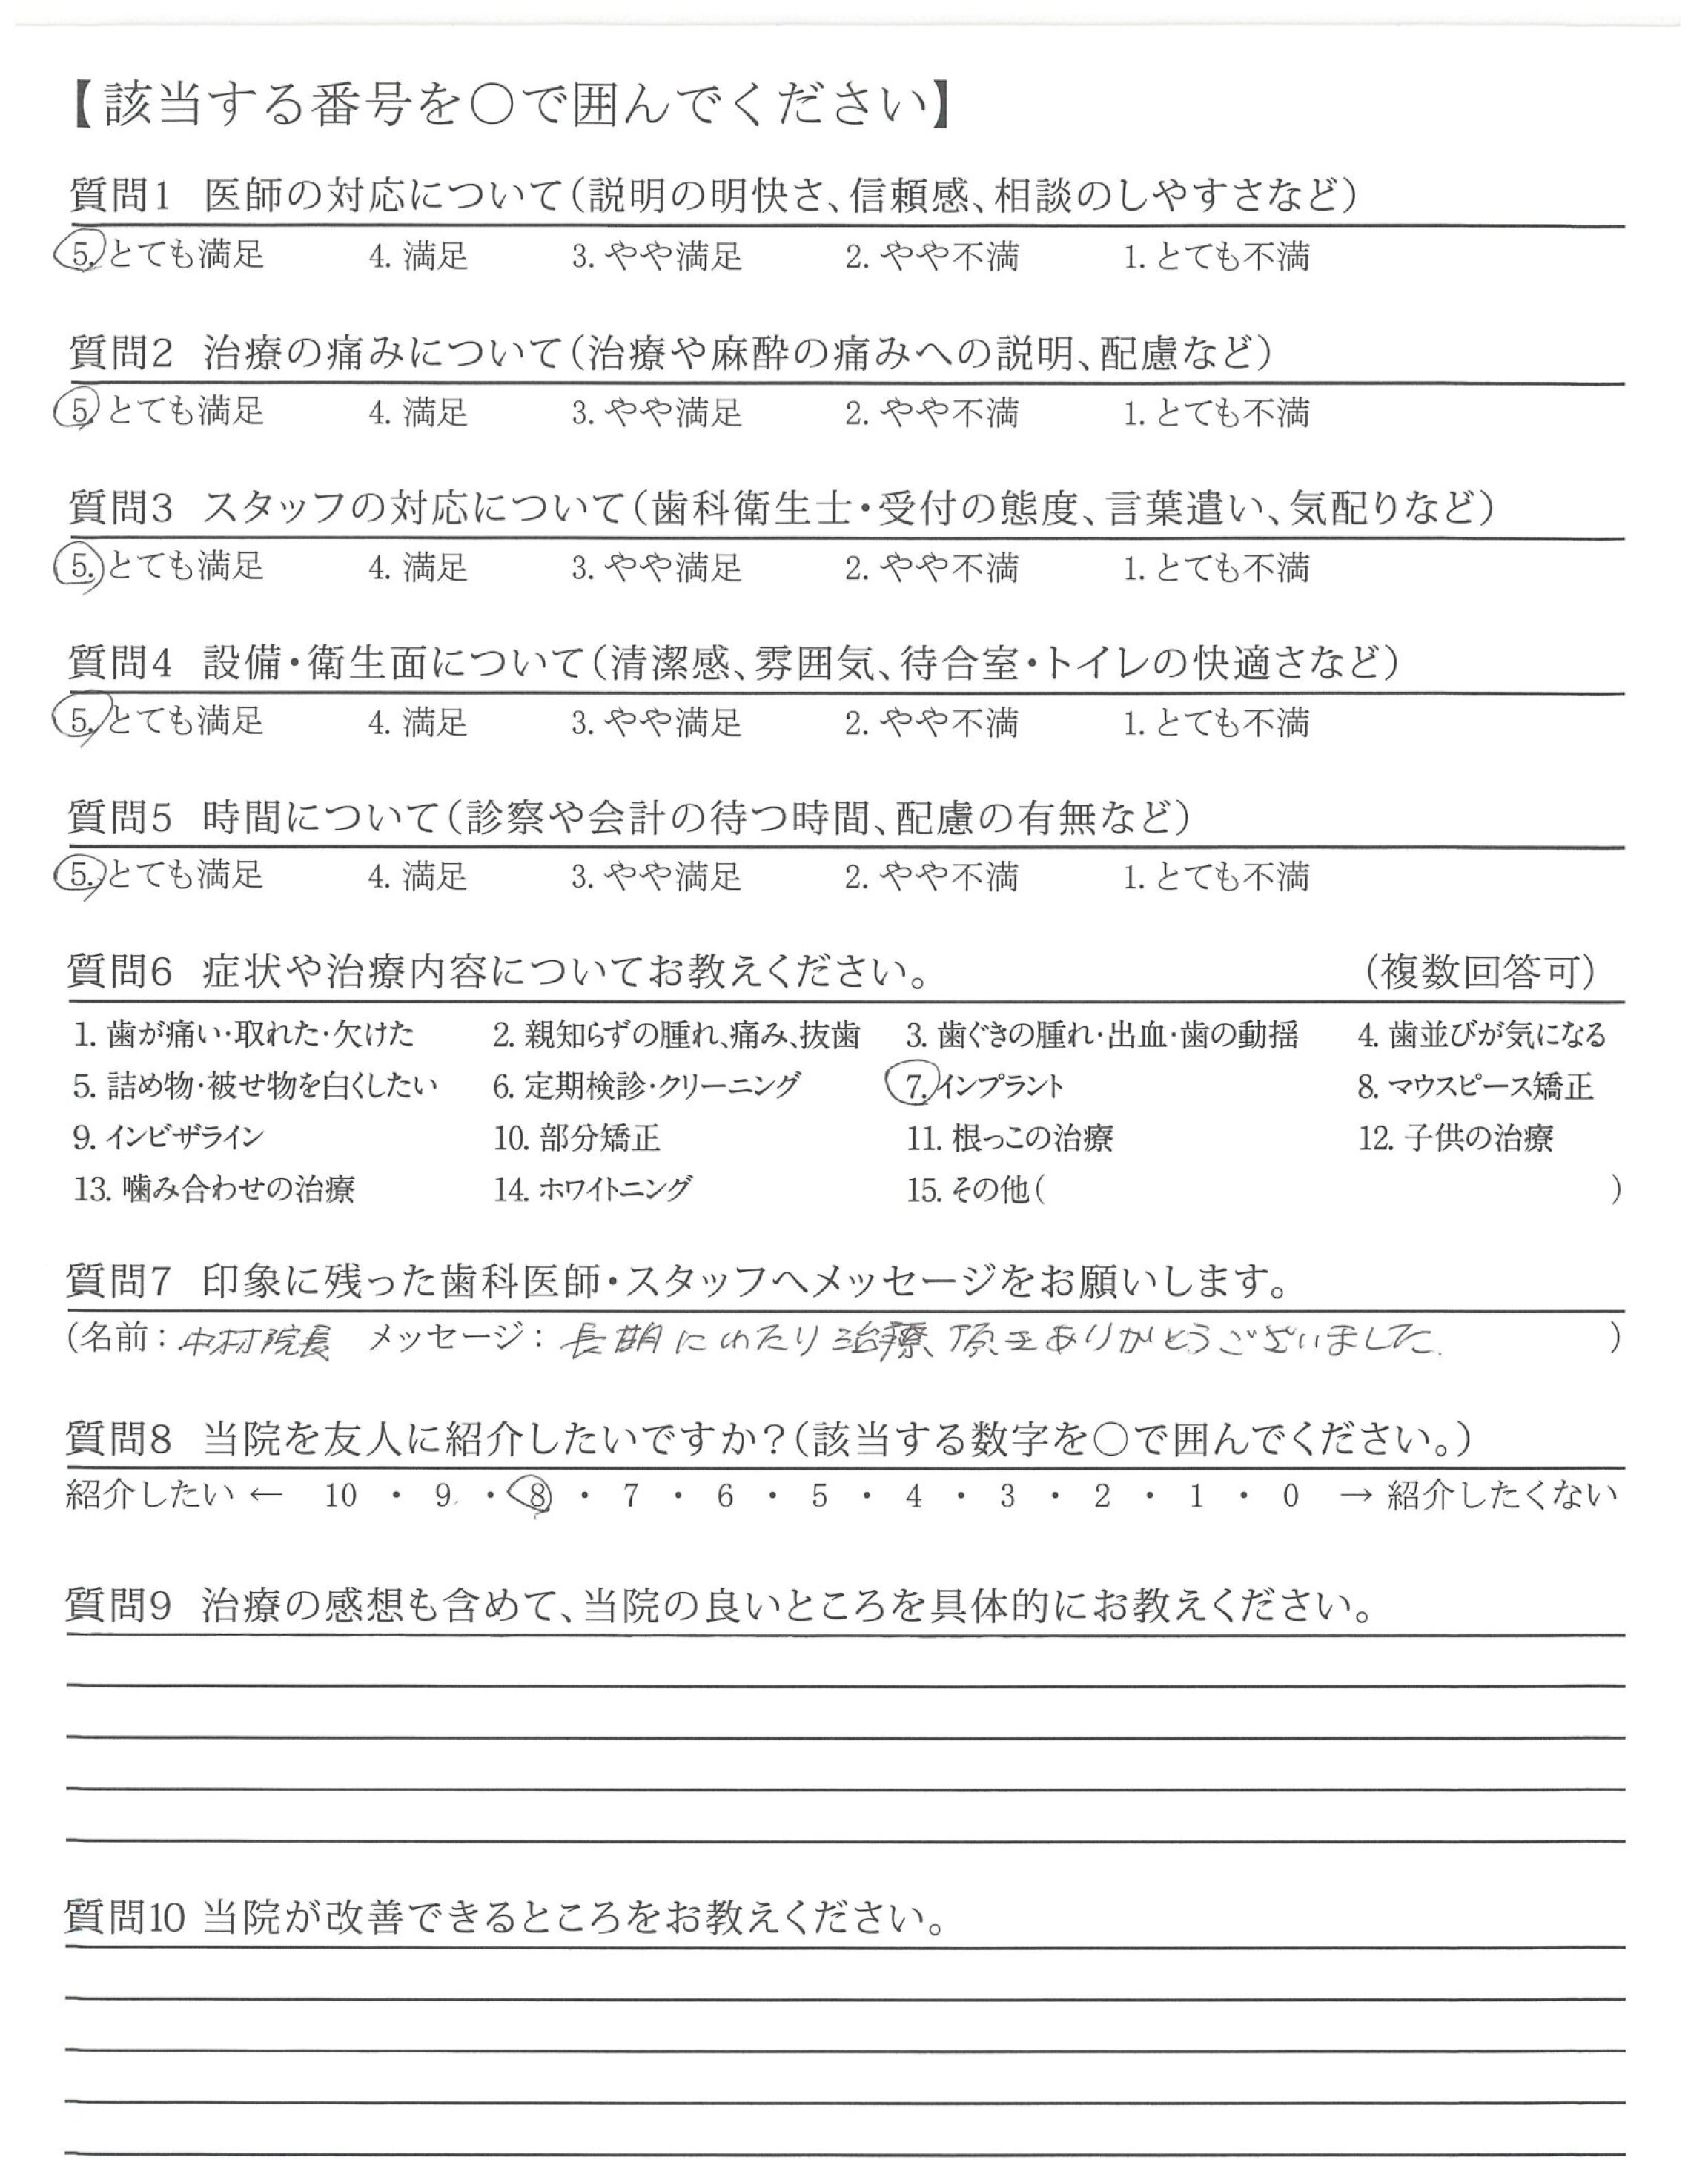 【該当する番号を○で囲んでください】
質問1 医師の対応について(説明の明快さ、信頼感、相談のしやすさなど)
5. とても満足 4. 満足 3. やや満足 2. やや不満 1. とても不満
質問2 治療の痛みについて(治療や麻酔の痛みへの説明、配慮など)
5. とても満足 4. 満足 3. やや満足 2. やや不満 1. とても不満
質問3 スタッフの対応について(歯科衛生士・受付の態度、言葉遣い、気配りなど)
5. とても満足 4. 満足 3. やや満足 2. やや不満 1. とても不満
質問4 設備・衛生面について(清潔感、雰囲気、待合室・トイレの快適さなど)
5. とても満足 4. 満足 3. やや満足 2. やや不満 1. とても不満
質問5 時間について(診察や会計の待つ時間、配慮の有無など)
5. とても満足 4. 満足 3. やや満足 2. やや不満 1. とても不満
質問6 症状や治療内容についてお教えください。 (複数回答可)
1. 歯が痛い・取れた・欠けた 2. 親知らずの腫れ、痛み、抜歯 3. 歯ぐきの腫れ・出血・歯の動揺 4. 歯並びが気になる
5. 詰め物・被せ物を白くしたい 6. 定期検診・クリーニング 7. インプラント 8. マウスピース矯正
9. インビザライン 10. 部分矯正 11. 根っこの治療 12. 子供の治療
13. 噛み合わせの治療 14. ホワイトニング 15. その他( )
質問7 印象に残った歯科医師・スタッフへメッセージをお願いします。
(名前：中村院長 メッセージ：長期にわたり治療、頂きありがとうございました. )
質問8 当院を友人に紹介したいですか？(該当する数字を○で囲んでください。)
紹介したい ← 10 ・ 9 ・ 8 ・ 7 ・ 6 ・ 5 ・ 4 ・ 3 ・ 2 ・ 1 ・ 0 → 紹介したくない
質問9 治療の感想も含めて、当院の良いところを具体的にお教えください。
質問10 当院が改善できるところをお教えください。